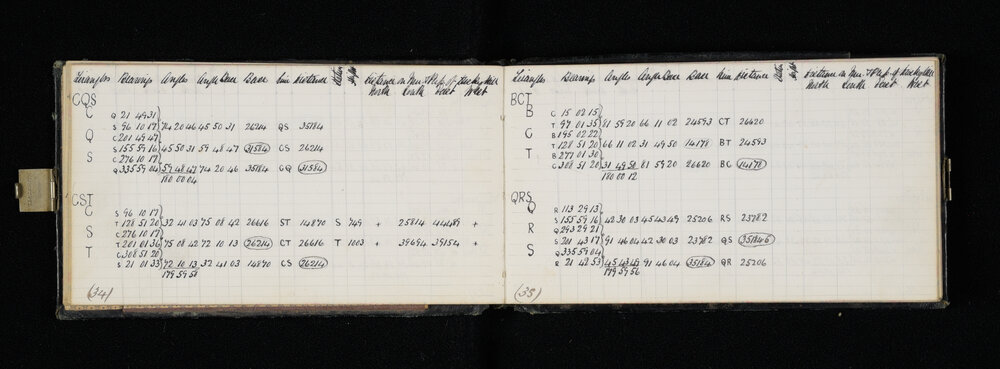 Triangles Bearings Angles Angle Base Base Dim Distance
CQS
C Q 21 49 31
S 96 10 17 74 20 46 45 50 31 26214 QS 35184
Q C 201 49 49
S 155 59 16 45 50 31 59 48 47 31584 CS 26214
S C 276 10 17
Q 335 59 04 59 48 47 74 20 46 35184 CQ 31584
180 00 04
CST
C S 96 10 17
T 128 51 20 32 41 03 75 08 42 26616 ST 14870 S 749 + 25814 44489 +
S C 276 10 17
T 201 01 36 75 08 42 72 10 13 26214 CT 26616 T 1003 + 39694 39154 +
T C 308 51 20
S 21 01 33 72 10 13 32 41 03 14870 CS 26214
179 59 58
(34)
Triangles Bearings Angles Angle Base Base Dim Distance
BCT
B C 15 02 15
T 97 01 35 81 59 20 66 11 02 24593 CT 26620
C B 195 02 22
T 128 51 20 66 11 02 31 49 50 14178 BT 24593
T B 277 01 30
C 308 51 20 31 49 50 81 59 20 26620 BC 14178
180 00 12
QRS
Q R 113 29 13
S 155 59 16 42 30 03 45 43 49 25206 RS 23782
R Q 293 29 21
S 201 43 17 91 46 04 42 30 03 23782 QS 35184
S Q 335 59 04
R 21 42 53 45 43 49 91 46 04 35184 QR 25206
179 59 56
(35)